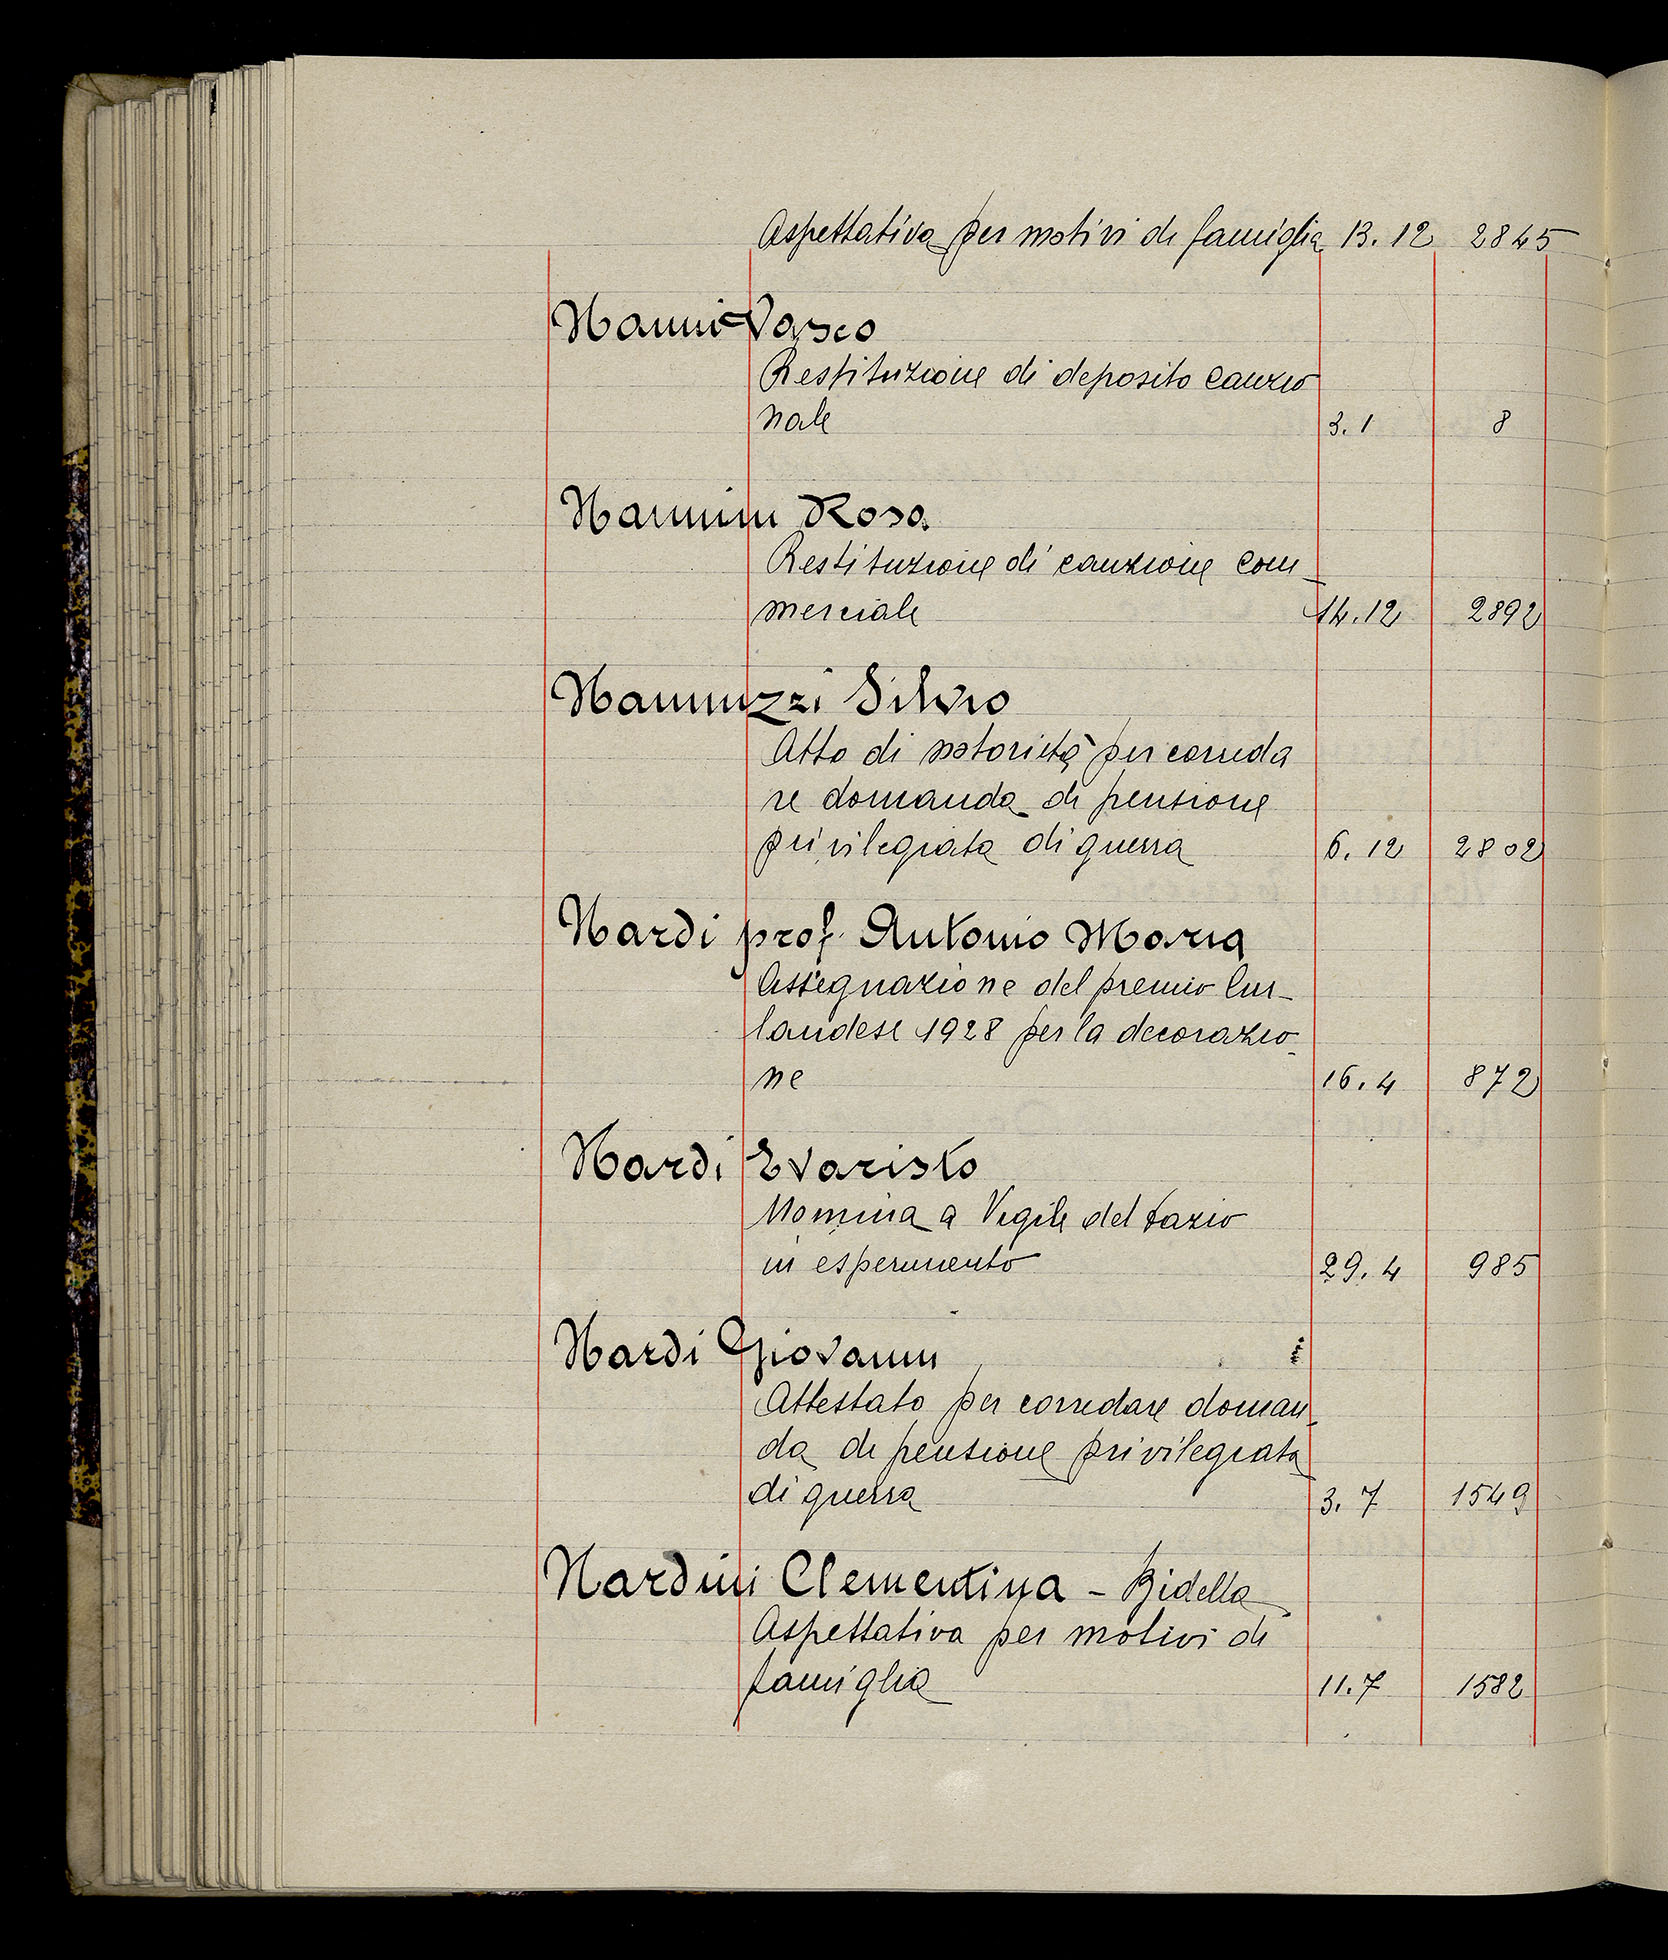 Aspettativa per motivi di famiglia 13.12 2845
Nanni Vasco
Restituzione di deposito cauzio
nale 3.1 8
Nannini Rosa
Restituzione di cauzione com_
merciale 14.12 2892
Nannuzzi Silvio
Atto di notorietà per correda
re domanda di pensione
privilegiata di guerra 6.12 2802
Nardi prof. Antonio Maria
Assegnazione del premio Cur_
landese 1928 per la decorazio_
ne 16.4 872
Nardi Evaristo
Nomina a Vigile del dazio
in esperimento 29.4 985
Nardi Giovanni
Attestato per corredare doman_
da di pensione privilegiata
di guerra 3.7 1549
Nardini Clementina - Bidella
Aspettativa per motivi di
famiglia 11.7 1582